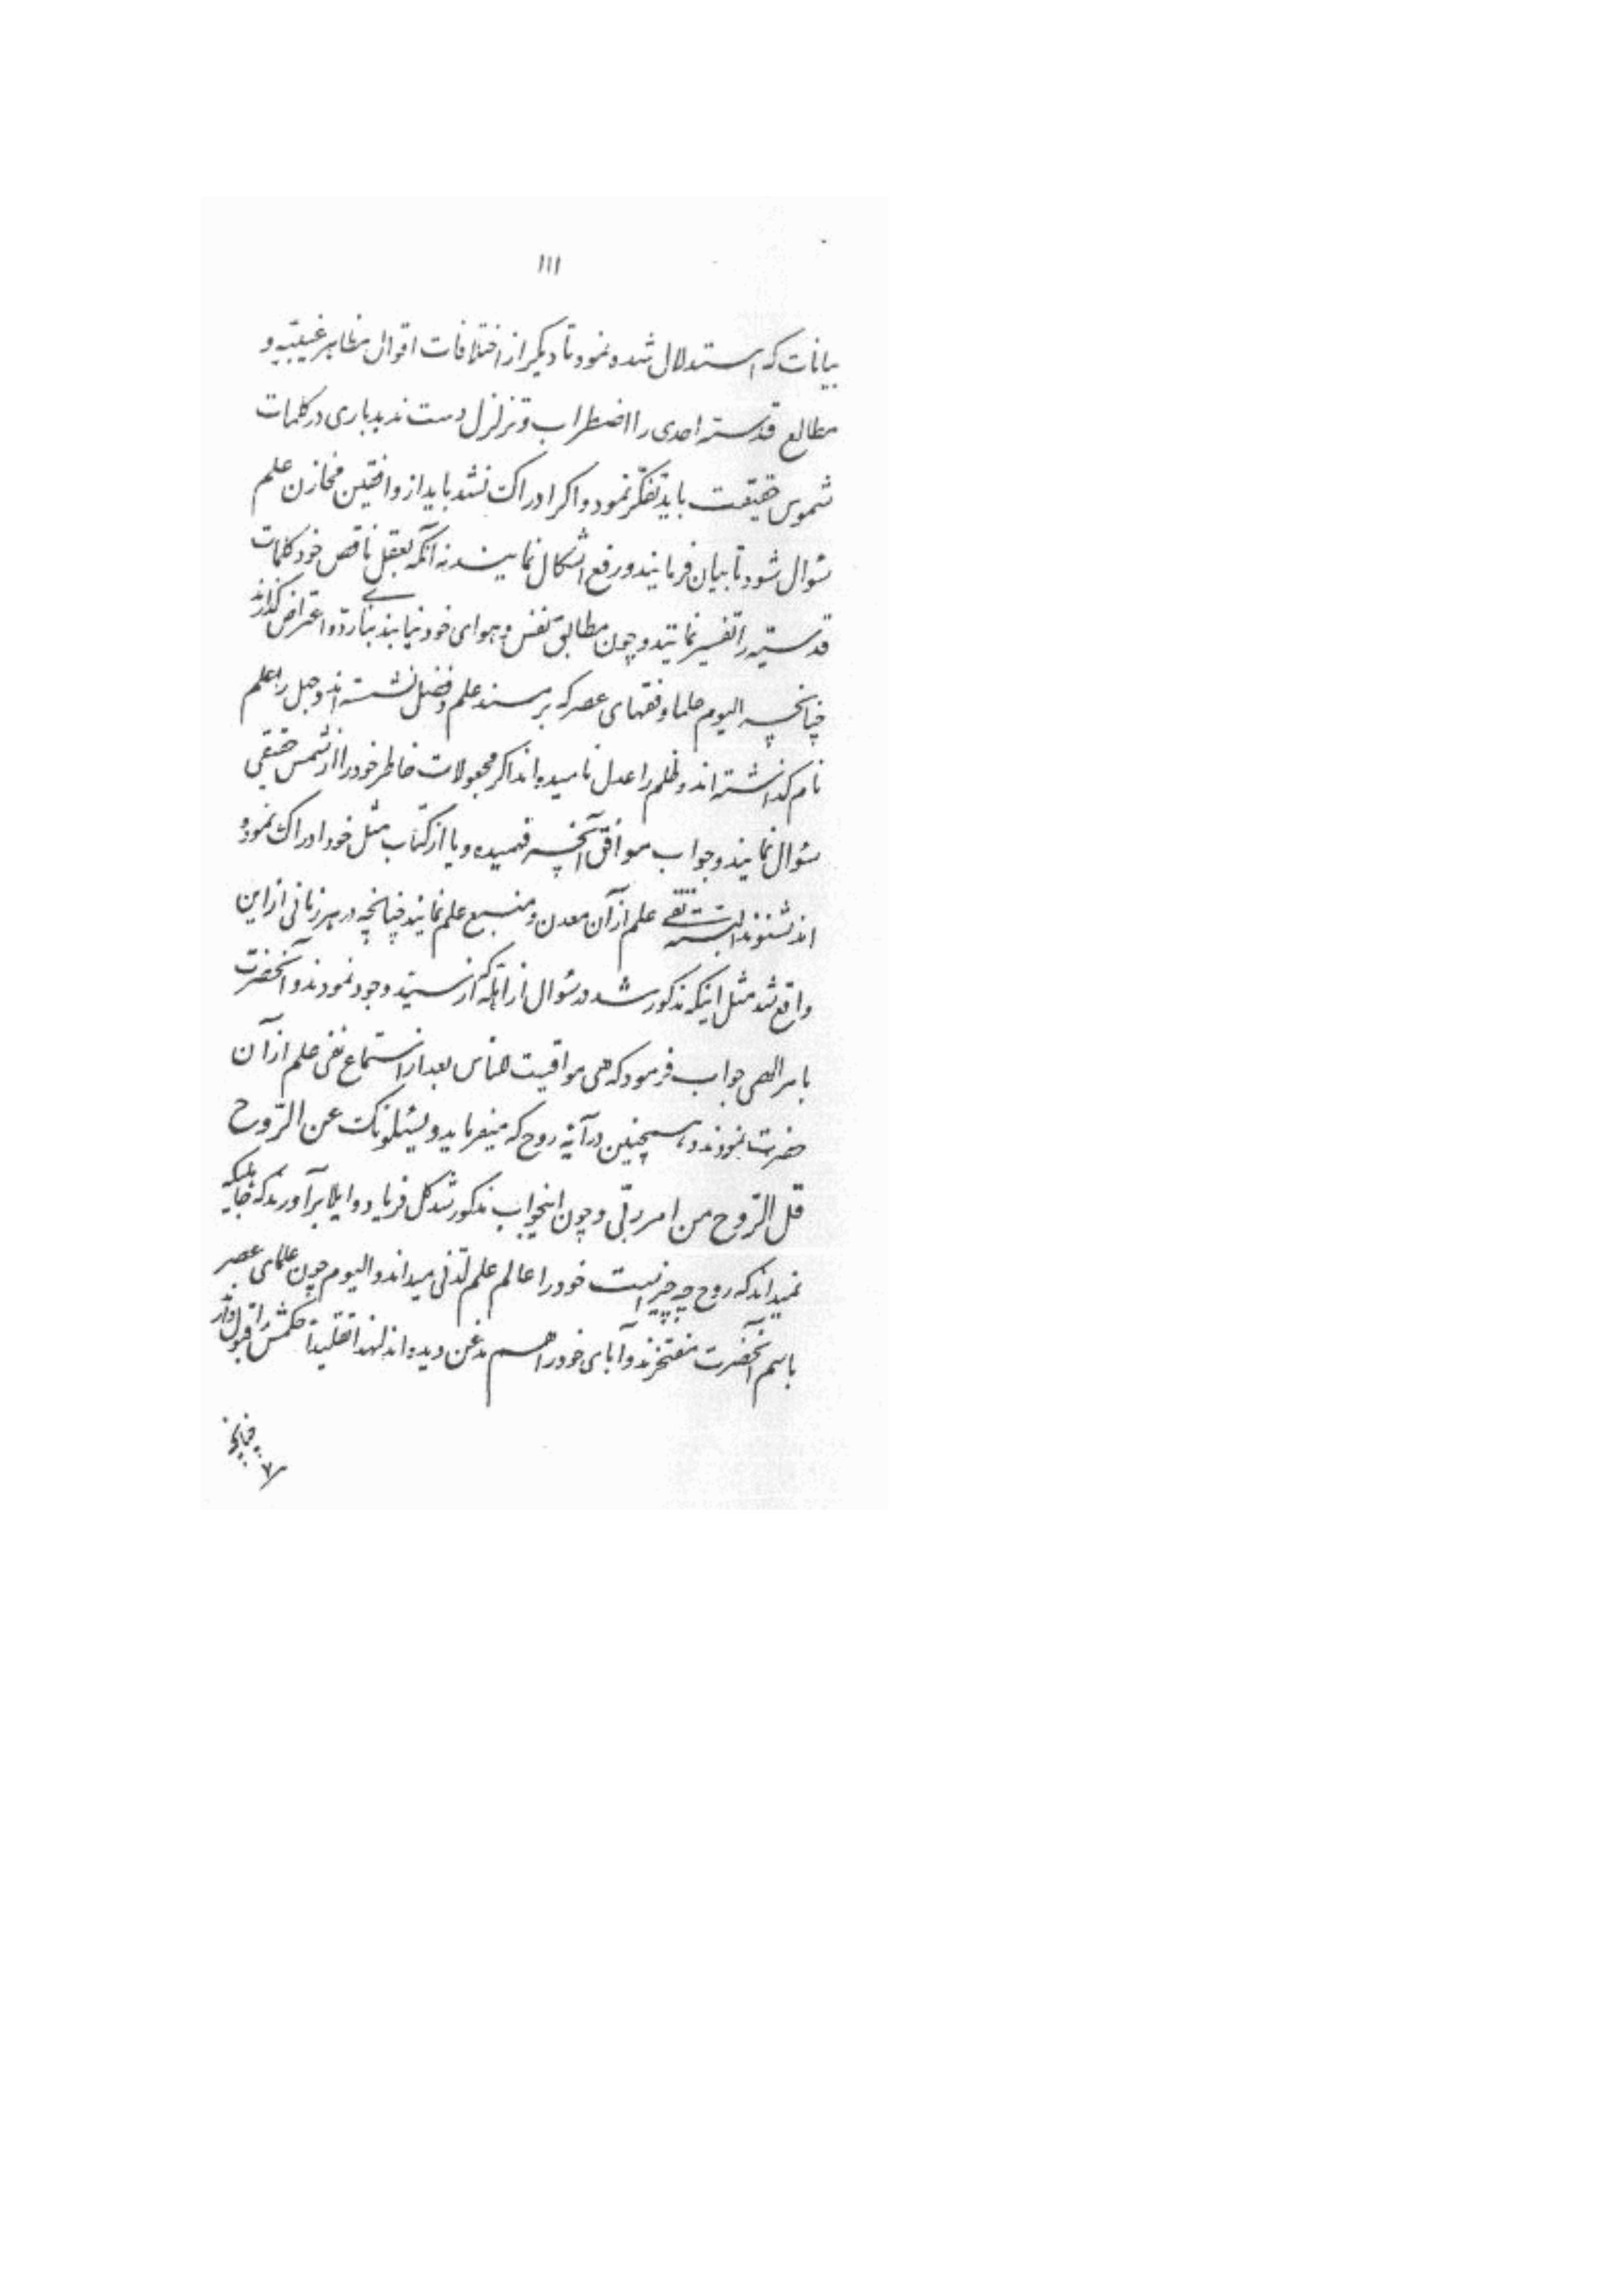 ١١١
بیانات که استدلال شده نمود تا دیگر از اختلافات اقوال مظاهر غیبیّه و
مطالع قدسیّه احدی را اضطراب و تزلزل دست ندهد باری در کلمات
شموس حقیقت باید تفکّر نمود و اگر ادراک نشد باید از واقفین مخازن علم
سؤال شود تا بیان فرمایند و رفع اشکال نمایند نه آنکه بعقل ناقص خود کلمات
قدسیّه را تفسیر نمایند و چون مطابق نفس و هوای خود نیابند بنای ردّ و اعتراض گذارند
چنانچه الیوم علما و فقهای عصر که بر مسند علم و فضل نشسته‌اند و جهل را علم
نام گذاشته‌اند و ظلم را عدل نامیده‌اند اگر مجعولات خاطر خود را از شمس حقیقی
سؤال نمایند و جواب موافق آنچه فهمیده و یا از کتاب مثل خود ادراک نموده
اند نشنوند البتّه نفی علم از آن معدن و منبع علم نمایند چنانچه در هر زمانی از این
واقع شد مثل اینکه مذکور شد در سؤال از اهلّه که از سیّد وجود نمودند و آنحضرت
بامر الهی جواب فرمود که هی مواقیت للنّاس بعد از استماع نفی علم از آن
حضرت نمودند و همچنین در آیه روح که میفرماید و یسئلونک عن الرّوح
قل الرّوح من امر ربّی و چون اینجواب مذکور شد کل فریاد واویلا برآوردند که جاهلیکه
نمیداند که روح چه چیز است خود را عالم علم لدنّی میداند و الیوم چون علمای عصر
باسم آنحضرت مفتخرند و آبای خود را هم مذعن دیده‌اند لهذا تقلیداً حکمش را قبول دارند
چنانچه